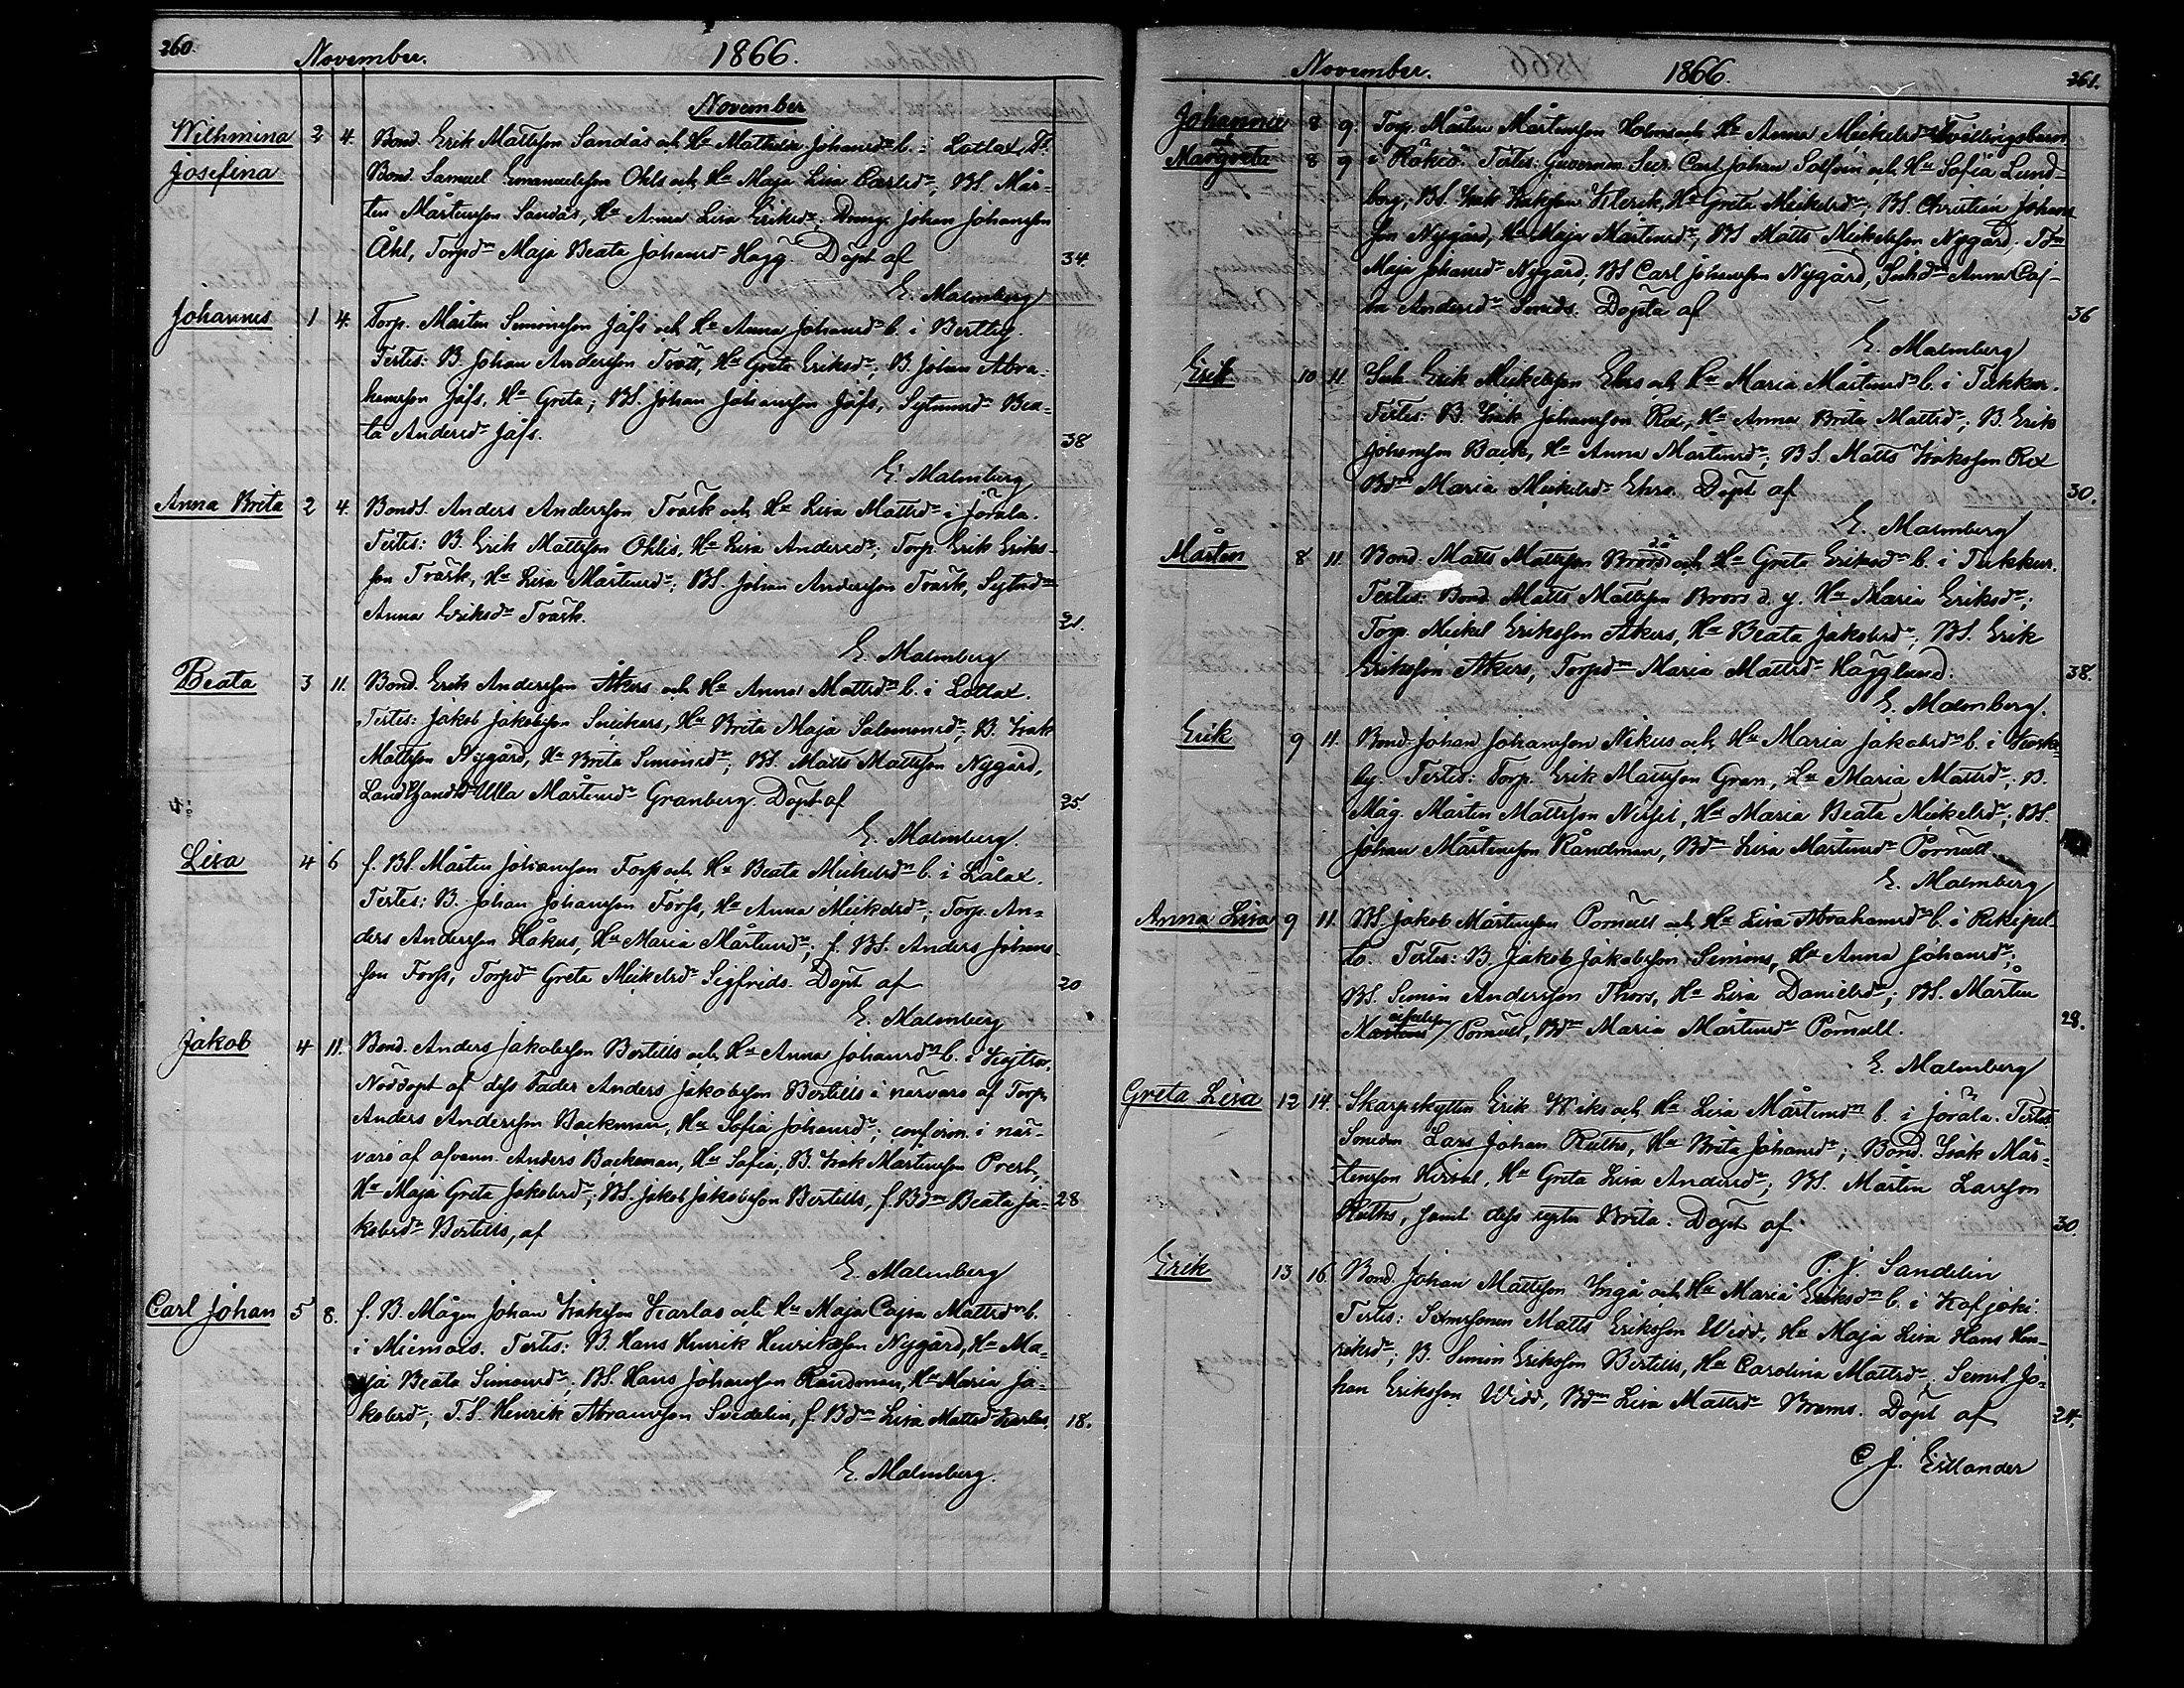 260.
November.
1866.
November
Wilhmina 2 4. Bond. Erik Mattsson Sandås och Hu Mathilda Johansdr b. i Lotlax. Ts.
Josefina Bond. Samuel Emanuelsson Ohls och Hu Maja Lisa Carlsdr, BS. Mår-
ten Mårtensson Sandås, Hu Anna Lisa Eriksdr; Dreng Johan Johansson
Åhl, Torpdr Maja Beata Johansdr Hägg. Döpt af 34.
E. Malmberg
Johannes 1 4. Torp. Mårten Simonsson Jåfs och Hu Anna Johansdr b. i Bertby.
Testes: B. Johan Andersson Tvätt, Hu Greta Eriksdr; B. Johan Abra-
hamsson Jåfs, Hu Greta; BS. Johan Johansson Jåfs, Sytnmsdr Bea-
ta Andersdr Jåfs. 38
E. Malmberg
Anna Brita 2 4. BondS. Anders Andersson Tvärk och Hu Lisa Mattsdr i Jörala.
Testes: B. Erik Mattsson Ohlis, Hu Lisa Andersdr; Torp. Erik Eriks-
son Tvärk, Hu Lisa Mårtensdr; BS. Johan Andersson Tvärk, Sytndr
Anna Eriksdr Tvärk. 21.
E. Malmberg
Beata 3 11. Bond. Erik Andersson Åkers och Hu Anna Mattsdr b. i Lotlax.
Testes: Jakob Jakobsson Snickars, Hu Brita Maja Salomonsdr; B. Isak
Mattsson Nygård, Hu Brita Simonsdr; BS. Matts Mattsson Nygård,
Ulla Mårtensdr Granberg. Döpt af 25
E. Malmberg.
Lisa 4 6 f. BS. Mårten Johansson Forss och Hu Beata Mickelsdr b. i Lålax.
Testes: B. Johan Johansson Forss, Hu Anna Mickelsdr; Torp. An-
ders Andersson Håkus, Hu Maria Mårtensdr; f. BS. Anders Johans-
son Forss, Torpdr Greta Mickelsdr Sigfrids. Döpt af 20
E. Malmberg
Jakob 4 11. Bond. Anders Jakobsson Bertills och Hu Anna Johansdr b. i Kojtra.
Nöddöpt af dess Fader Anders Jakobsson Bertills i närvaro af Torp.
Anders Andersson Backman, Hu Sofia Johansdr; confirm. i när-
varo af ofvann. Anders Backman, Hu Sofia; B. Isak Mårtensson Prest,
Hu Maja Greta Jakobsdr; BS. Jakob Jakobsson Bertills, f. Bdr Beata Ja- 28
kobsdr Bertills, af
E. Malmberg
Carl Johan 5 8. f. B. Mågen Johan Isaksson Karlas och Hu Maja Cajsa Mattsdr b.
i Miemois. Testes: B. Hans Henrik Henriksson Nygård, Hu Ma-
ja Beata Simonsdr; BS. Hans Johansson Råndman, Hu Maria Ja-
kobsdr; T.S. Henrik Abramsson Svedelin, f. Bdr Lisa Mattsdr Karlas. 18.
E. Malmberg.
November.
1866.
261.
Johanna 8 9. Torp. Mårten Mårtensson Holm och Hu Anna Mickelsdr Tvillingsbarn
Margreta 8 9 i Rökiö. Testes: Guvernem. Secr. Carl Johan Solfvin och Hu Sofia Lund-
berg; BS. Isak Isaksson Klerik, Hu Greta Mickelsdr; BS. Christian Johans-
son Nygård, Hu Maja Mårtensdr; BS Matts Mickelsson Nygård,
Maja Johansdr Nygård; BS Carl Johansson Nygård, Inhdr Anna Caj-
sa Andersdr Smeds. Döpta af 36
E. Malmberg
Erik 10 11. Inh. Erik Mickelsson Ehrs och Hu Maria Mårtensdr b. i Tukkur.
Testes: B. Isak Johansson Rex, Hu Anna Brita Mattsdr; B. Erik
Johansson Back, Hu Anna Mårtensdr; BS. Matts Isaksson Rex
Bdr Maria Mickelsdr Ehrs. Döpt af 30.
E. Malmberg
Mårten 8 11. Bond. Matts Mattsson Brors d.ä. och Hu Greta Eriksdr b. i Tukkur.
Testes: Bond. Matts Mattsson Brors d. y. Hu Maria Eriksdr;
Torp. Mickel Eriksson Åkers, Hu Beata Jakobsdr; BS. Erik
Eriksson Åkers; Torpdr Maria Mattsdr Hägglund. 38.
E. Malmberg.
Erik 9 11. Bond. Johan Johansson Nikus och Hu Maria Jakobsdr b. i Koske-
by. Testes: Torp. Erik Mattsson Gran, Hu Maria Mattsdr; B.
Måg. Mårten Mattsson Nissei, Hu Maria Beata Mickelsdr; BS.
Johan Mårtensson Råndman, Bdr Lisa Mårtensdr Pörnull.
E. Malmberg
Anna Lisa 9 11. BS. Jakob Mårtensson Pörnull och Hu Lisa Abrahamsdr b. i Rekipel-
to. Testes: B. Jakob Jakobsson Simons, Hu Anna Johansdr;
BS. Simon Andersson Thors, Hu Lisa Danielsdr; BS. Mårten
Pörnull, Bdr Maria Mårtensdr Pörnull. 28.
E. Malmberg
Greta Lisa 12 14. Skarpskytten Erik Wiks och Hu Lisa Mårtensdr b. i Jörala. Testes
Smeden Lars Johan Ruths, Hu Brita Johansdr; Bond. Isak Mår-
tensson Hirvel, Hu Greta Lisa Andersdr; BS. Mårten Larsson
Ruths, samt dess syster Brita. Döpt af 30.
P. J. Sandelin
Erik 13 16 Bond. Johan Mattsson Ingå och Hu Maria Eriksdr b. i Kofjoki.
Testes: Sexmannen Matts Eriksson Widd, Hu Maja Lisa Hans Hen-
riksdr; B. Simon Eriksson Bertills, Hu Carolina Mattsdr; Jo-
han Eriksson Widd, Bdr Lisa Mattsdr Brams. Döpt af 24.
C. J. Estlander